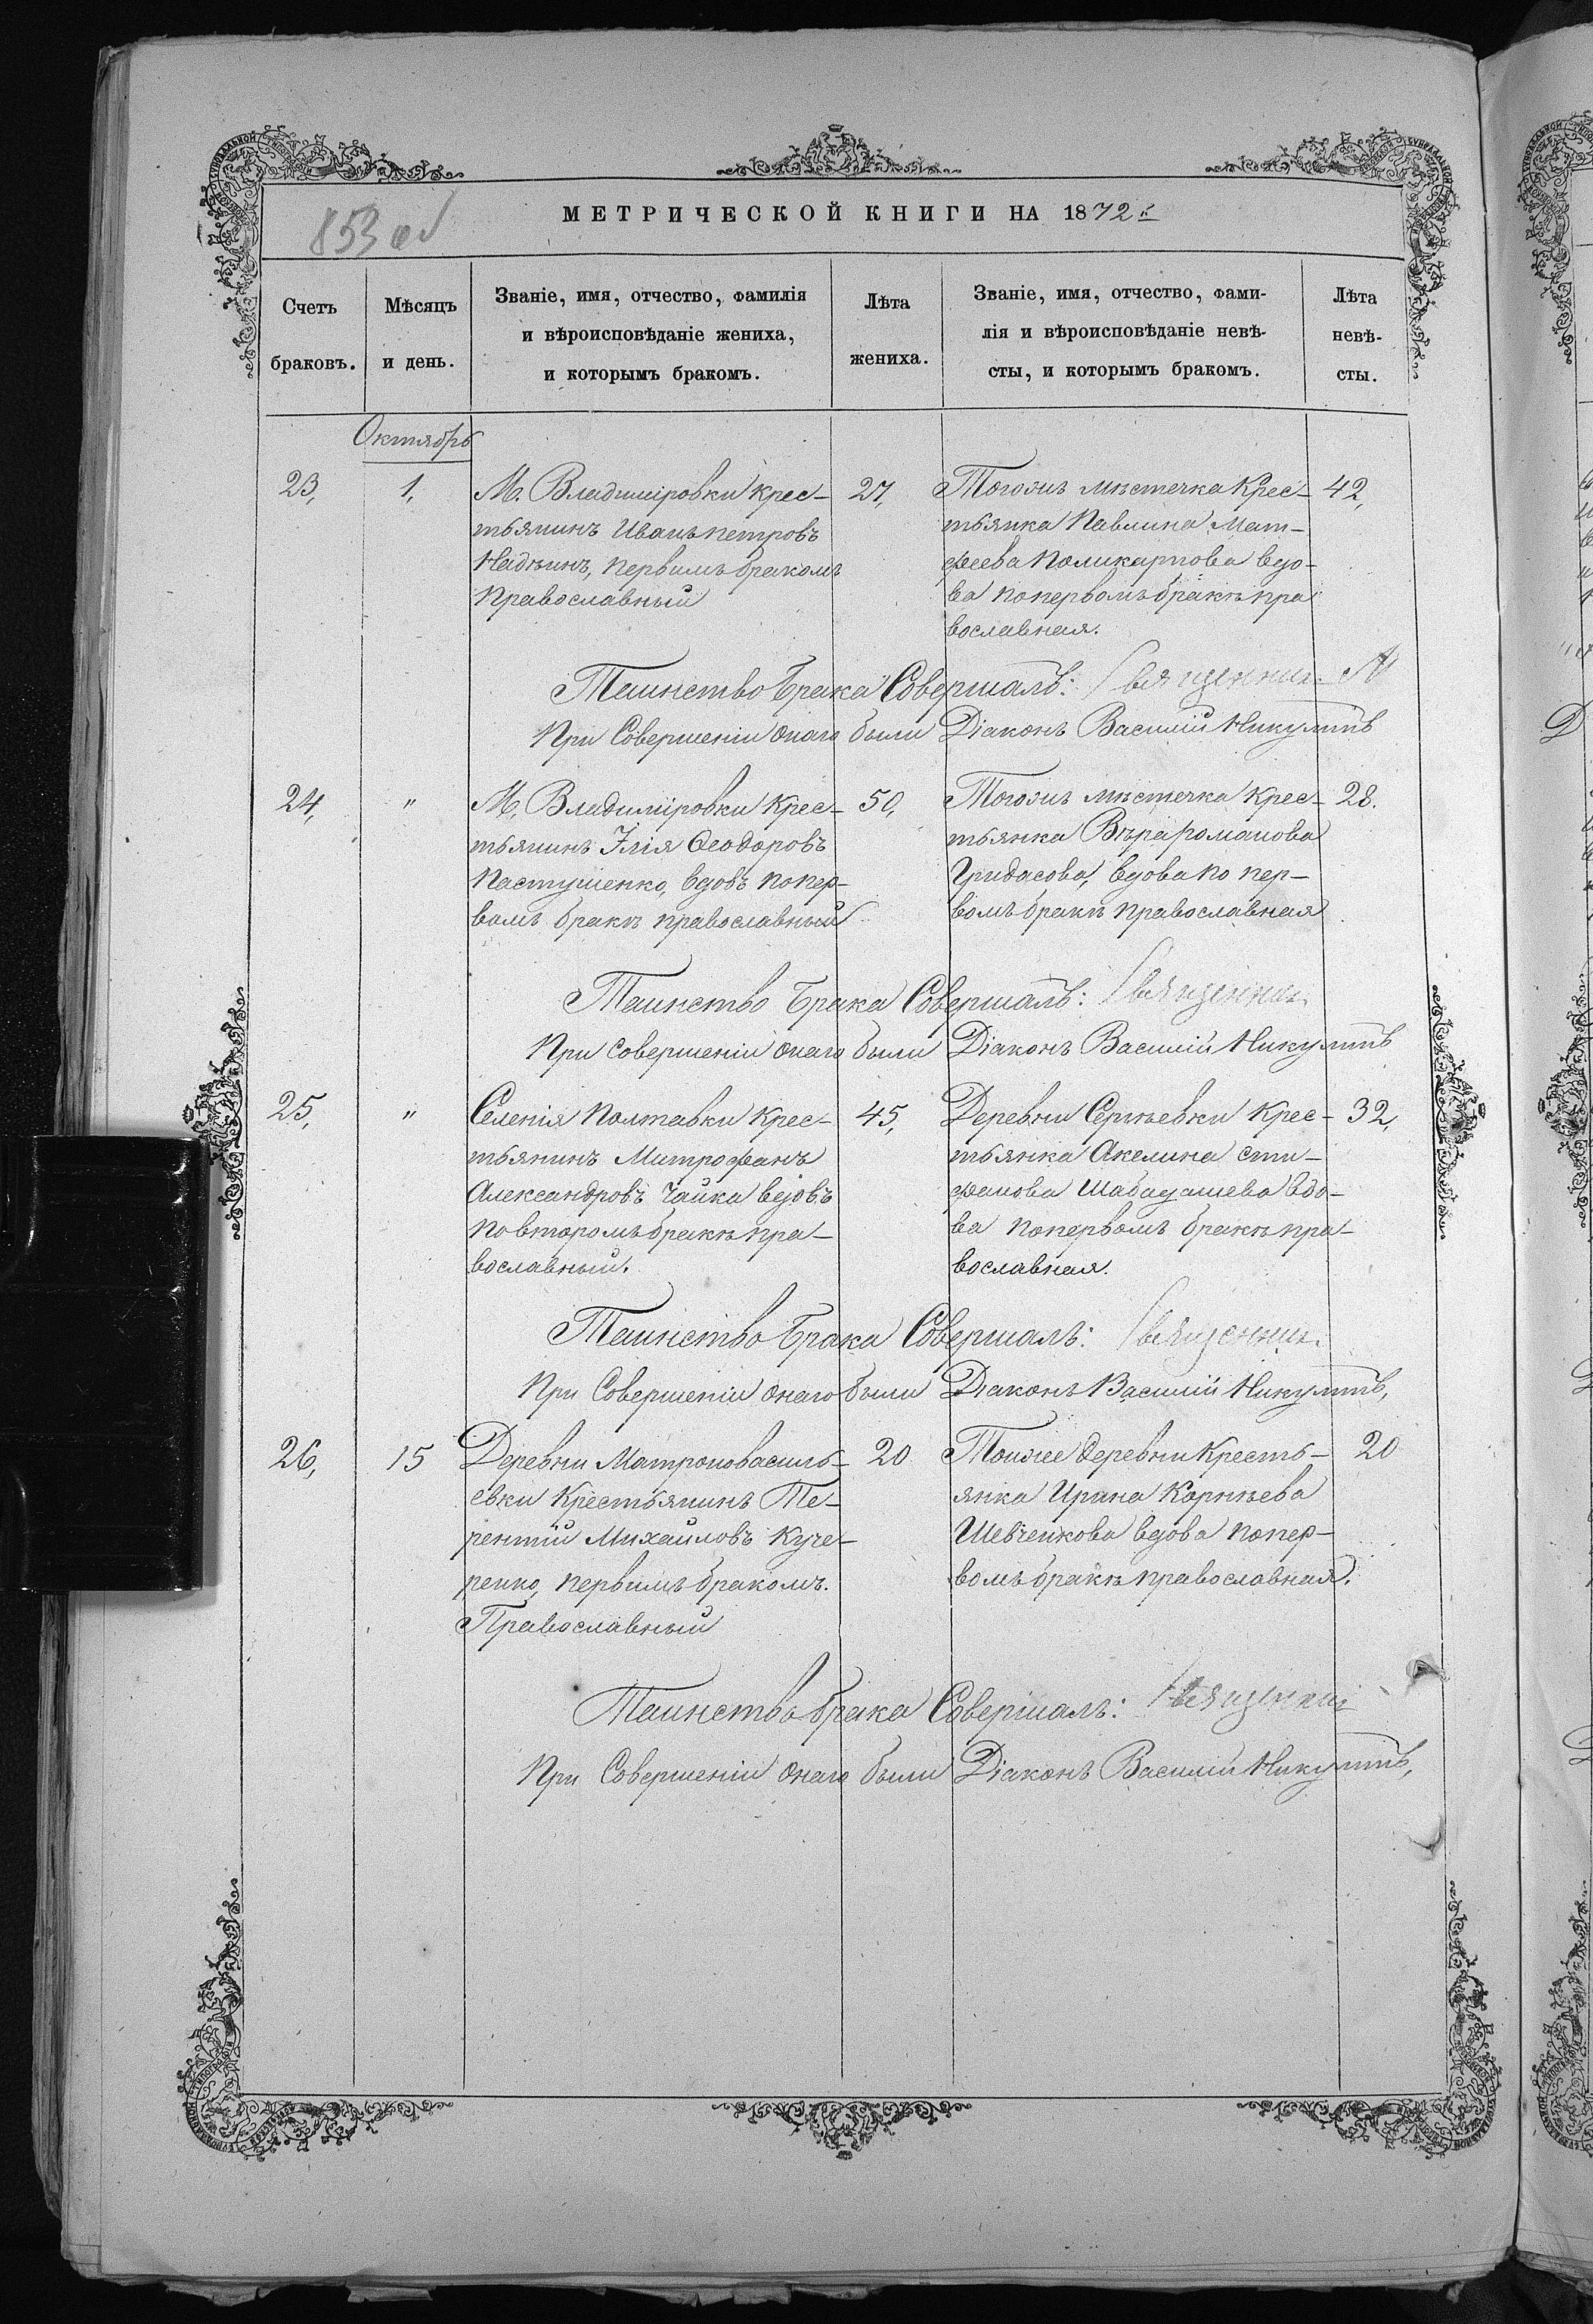 853 об
МЕТРИЧЕСКОЙ КНИГИ НА 1872 г.
Счетъ браковъ.
Мѣсяцъ и день.
Званіе, имя, отчество, фамилія
и вѣроисповѣданіе жениха,
и которымъ бракомъ.
Лѣта
жениха.
Званіе, имя, отчество, фами-
лія и вѣроисповѣданіе невѣ-
сты, и которымъ бракомъ.
Лѣта
невѣ-
сты.
Октябрь
23, 1,
М. Владиміровки крес-
тьянинъ Иванъ петровъ
Надѣинъ, первымъ бракомъ
православный
27,
Тогожъ мѣстечка Крес-
тьянка Павлина Мат-
феева Поликарпова вдо-
ва попервомъ бракѣ пра
вославная.
42,
Таинство брака Совершалъ: Священник
При Совершеніи онаго были Діаконъ Василій Никулинъ
24, "
М. Владиміровки Крес-
тьянинъ Илія Ѳеодоровъ
Пастушенко, вдовъ попер-
вомъ бракѣ православный
50,
Тогожъ мѣстечка крес-
тьянка Вѣра романова
Гридасова, вдова по пер-
вомъ бракѣ православная
28.
Таинство брака Совершалъ: Священник
При совершеніи онаго были Діаконъ Василій Никулинъ
25, "
Селенія Полтавки Крес-
тьянинъ Митрофанъ
Александровъ Чайка вдовъ
по второмъ бракѣ пра-
вославный.
45,
Деревни Сергѣевки Крес-
тьянка Акелина сти-
фанова Шабадашева вдо-
ва попервомъ бракѣ пра-
вославная.
32,
Таинство брака Совершалъ: Священник
При Совершеніи онаго были Діаконъ Василій Никулинъ,
26, 15
Деревни Матроновасиль-
евки Крестьянинъ Те-
рентій Михайловъ Куче-
ренко, первымъ бракомъ.
Православный
20
Тойже деревни Кресть-
янка Ирина Корнѣева
Шевченкова вдова попер-
вомъ бракѣ православная.
20
Таинство брака Совершалъ: Священник
При Совершеніи онаго были Діаконъ Василій Никулинъ,